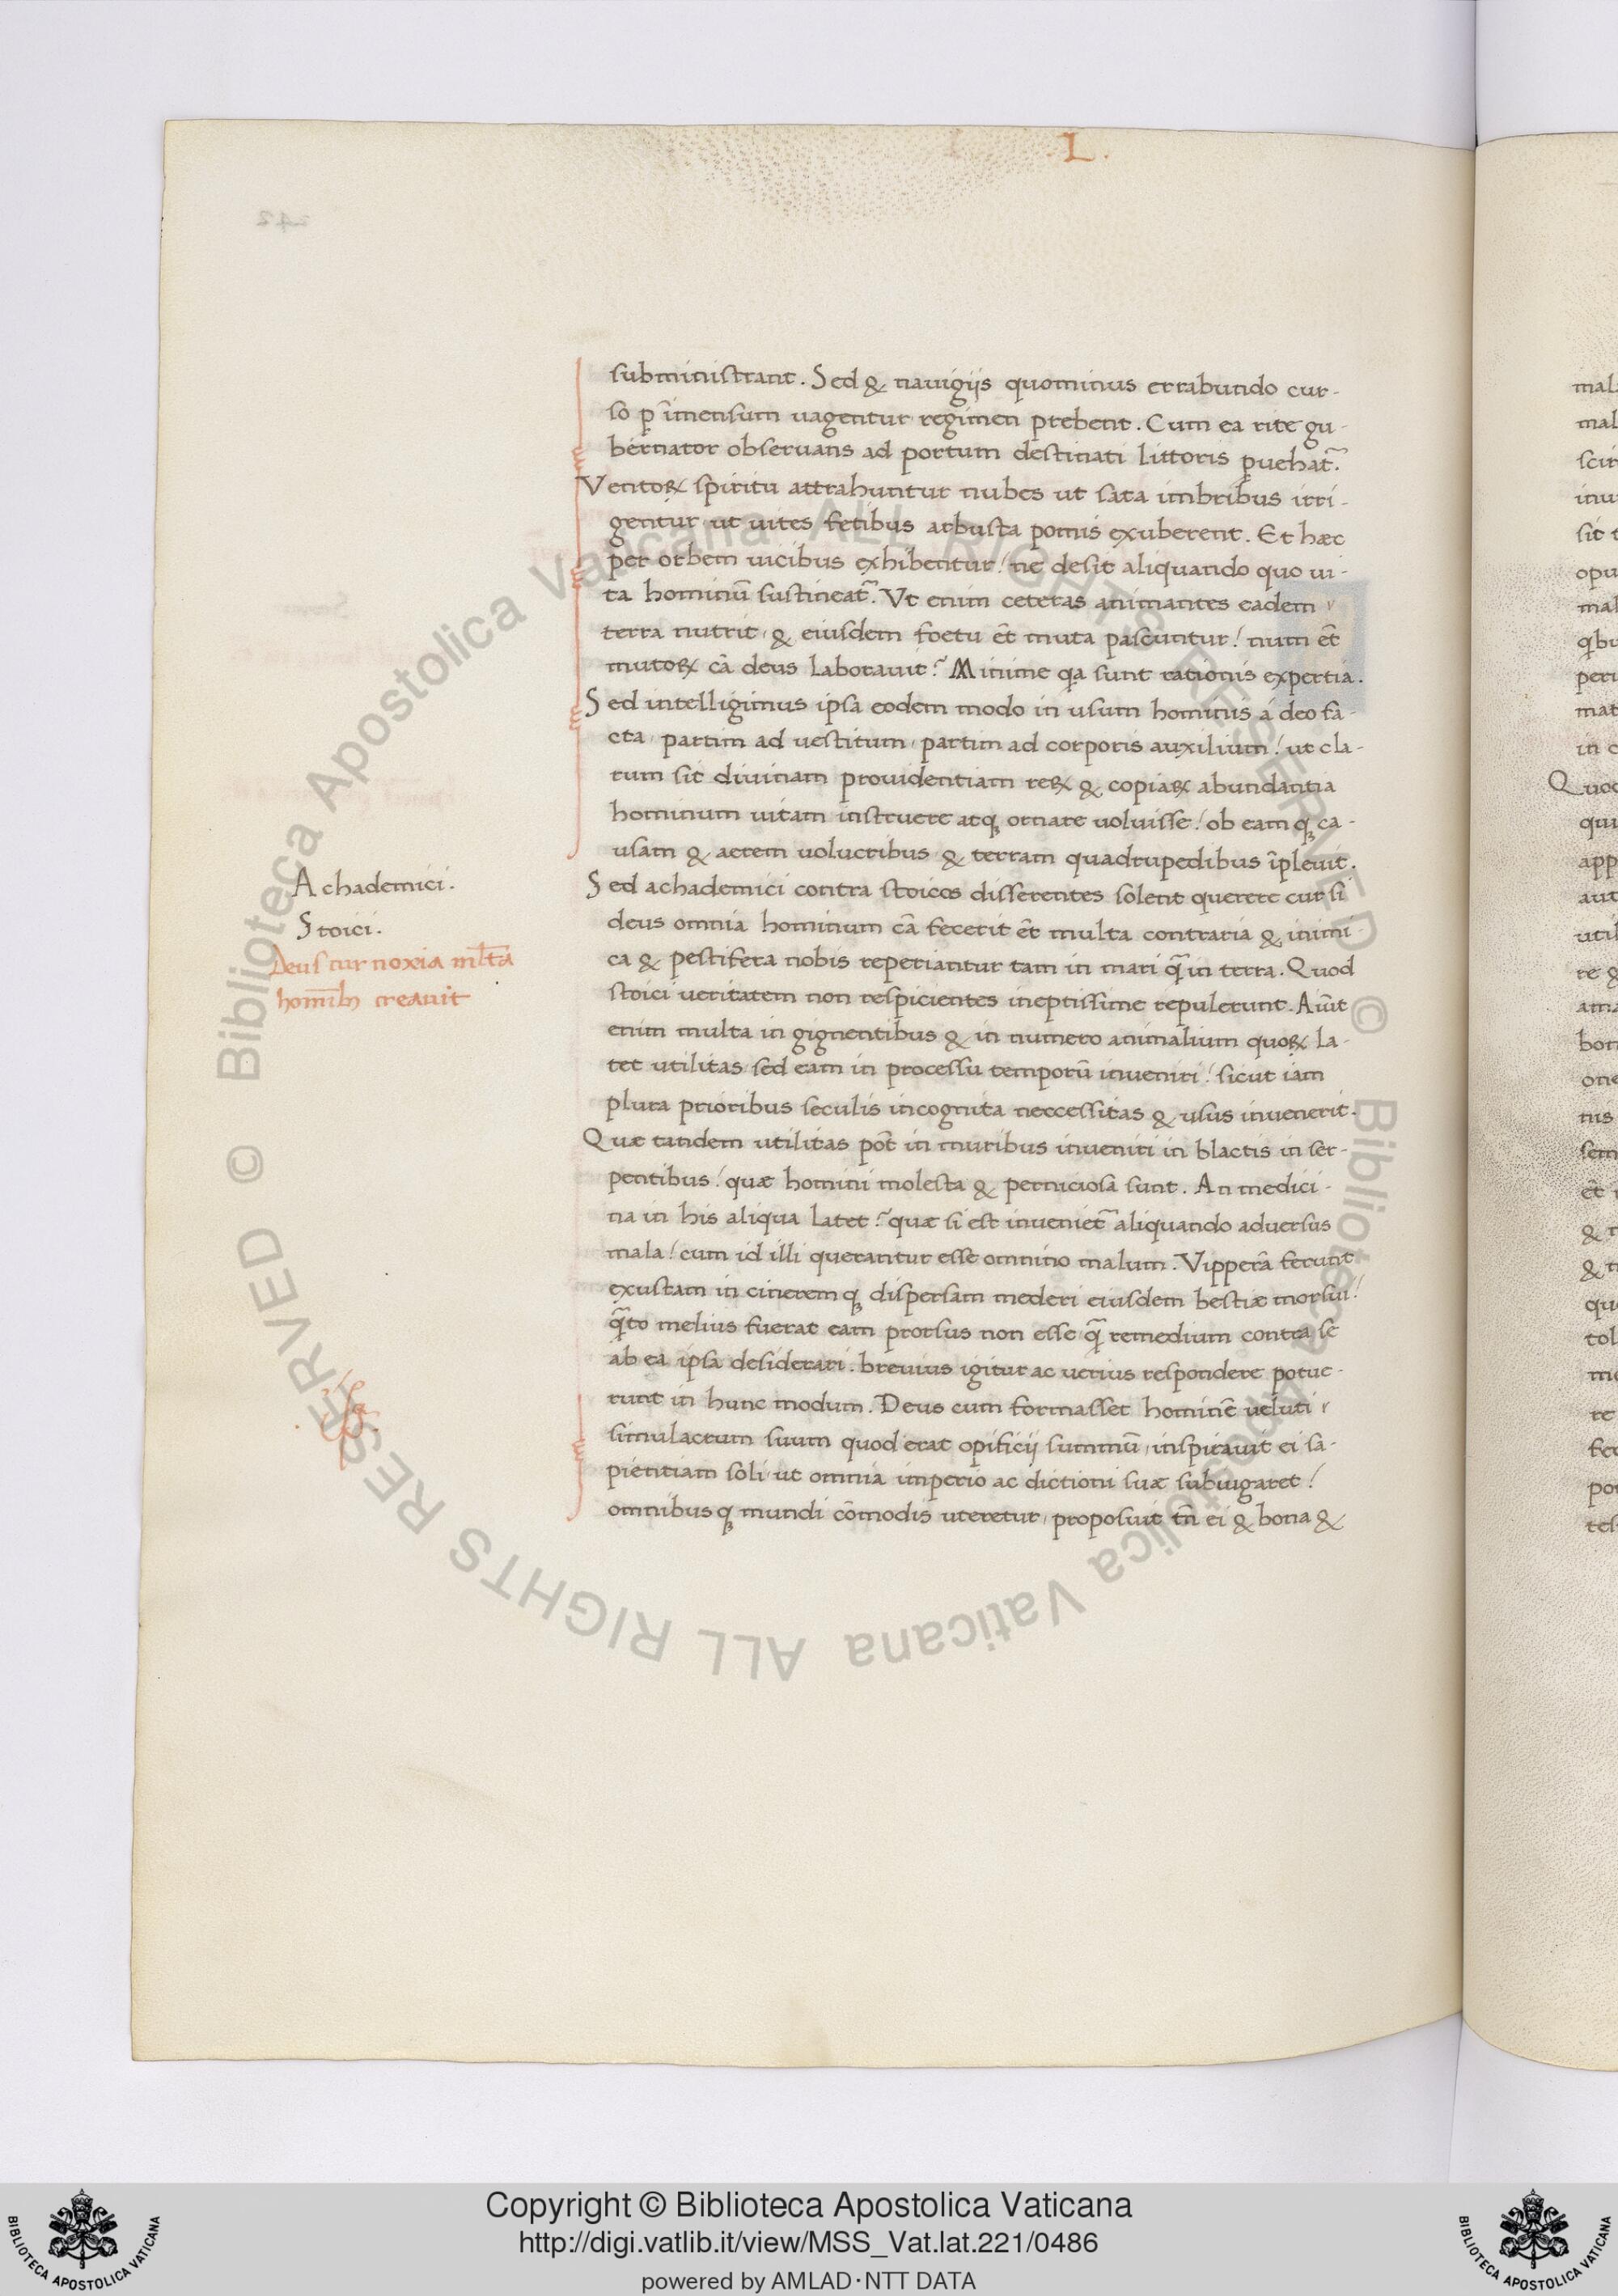 .L.
subministrant. Sed & nauigijs quominus errabundo cur-
so p̱ ĩmensum uagentur regimen prebent. Cum ea rite gu-
bernator obseruans ad portum destinati littoris p̱uehat̃.
Ventoꝝ spiritu attrahuntur nubes ut sata imbribus irri-
gentur, ut uites fetibus arbusta pomis exuberent. Et hæc
per orbem uicibus exhibentur! ne desit aliquando quo ui-
ta hominũ sustineat̃. Vt enim ceteras animantes eadem
terra nutrit, & eiusdem foetu et̃ muta pascuntur! num et̃
mutoꝝ cã deus laborauit? Minime qa sunt rationis expertia.
Sed intelligimus ipsa eodem modo in usum hominis á deo fa-
cta, partim ad uestitum, partim ad corporis auxilium! ut cla-
rum sit diuinam prouidentiam reꝝ & copiaꝝ abundantia
hominum uitam instruere atqꝫ ornare uoluisse! ob eamqꝫ ca-
usam & aerem uolucribus & terram quadrupedibus ĩpleuit.
Sed achademici contra stoicos disserentes solent querere cur si
deus omnia hominum cã fecerit et̃ multa contraria & inimi-
ca & pestifera nobis reperiantur tam in mari q̃ in terra. Quod
stoici ueritatem non respicientes ineptissime repulerunt. Aiũt
enim multa in gignentibus & in numero animalium quoꝝ la-
tet utilitas, sed eam in processu temporũ inueniri! sicut iam
plura prioribus seculis incognita neccessitas & usus inuenerit.
Quæ tandem utilitas pot̃ in muribus inueniri in blactis in ser-
pentibus! quæ homini molesta & perniciosa sunt. An medici-
na in his aliqua latet? quæ si est inueniet̃ aliquando aduersus
mala! cum id illi querantur esse omnino malum. Vipperã ferunt
exustam in cineremqꝫ dispersam mederi eiusdem bestiæ morsui!
q̃to melius fuerat eam prorsus non esse q̃ remedium contra se
ab ea ipsa desiderari. breuius igitur ac uerius respondere potue-
runt in hunc modum. Deus cum formasset hominẽ ueluti
simulacrum suum quod erat opificij summũ, inspirauit ei sa-
pientiam soli, ut omnia imperio ac dictioni suæ subiugaret!
omnibusqꝫ mundi cõmodis uteretur, proposuit tñ ei & bona &
Achademici.
Stoici.
Deus cur noxia ml̃ta
homĩbꝫ creauit
Copyright © Biblioteca Apostolica Vaticana
http://digi.vatlib.it/view/MSS_Vat.lat.221/0486
powered by AMLAD·NTT DATA
BIBLIOTECA APOSTOLICA VATICANA
BIBLIOTECA APOSTOLICA VATICANA
© Biblioteca Apostolica Vaticana ALL RIGHTS RESERVED © Biblioteca Apostolica Vaticana ALL RIGHTS RESERVED